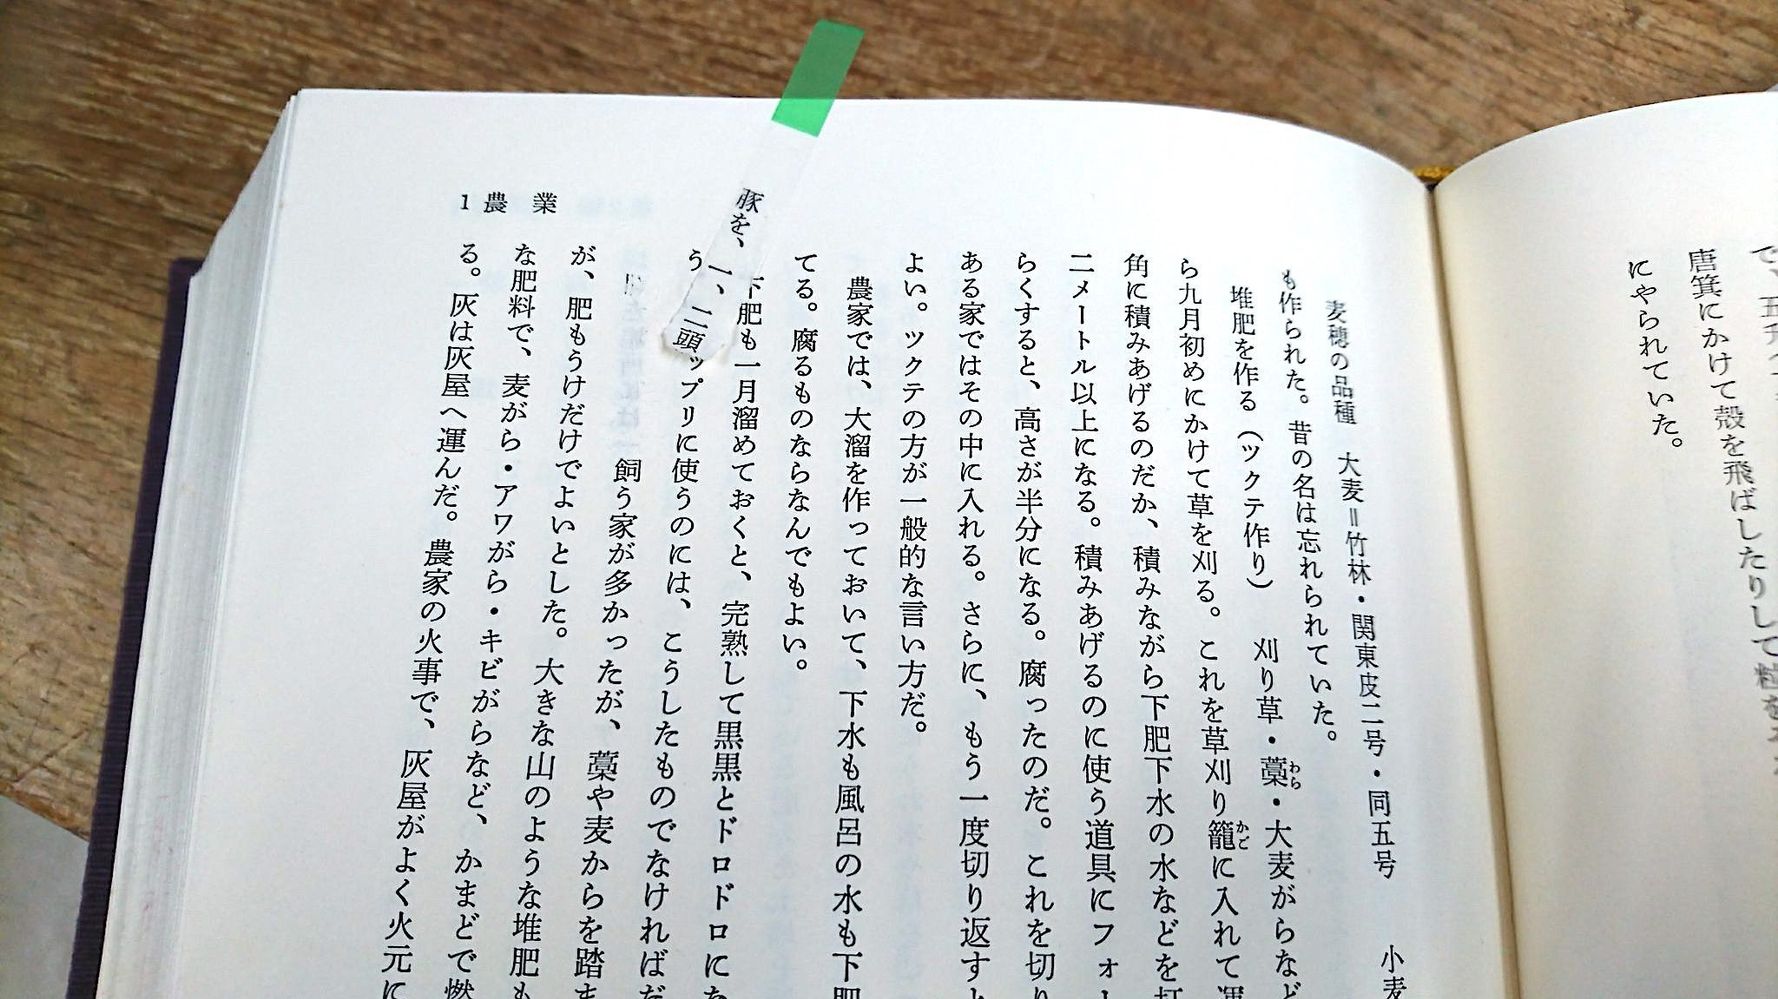 で、五升
唐箕にかけて殻を飛ばしたりして粒を
にやられていた。
麦穂の品種　大麦＝竹林・関東皮二号・同五号　小麦
も作られた。昔の名は忘れられていた。
堆肥を作る（ツクテ作り）　刈り草・藁・大麦がらなど
わら
ら九月初めにかけて草を刈る。これを草刈り籠に入れて運
かご
角に積みあげるのだか、積みながら下肥下水の水などを打
二メートル以上になる。積みあげるのに使う道具にフォー
らくすると、高さが半分になる。腐ったのだ。これを切り
ある家ではその中に入れる。さらに、もう一度切り返すと
よい。ツクテの方が一般的な言い方だ。
農家では、大溜を作っておいて、下水も風呂の水も下肥
てる。腐るものならなんでもよい。
下肥も一月溜めておくと、完熟して黒黒とドロドロにな
う　ップリに使うのには、こうしたものでなければだ
豚を、一、二頭
飼う家が多かったが、藁や麦からを踏ま
が、肥もうけだけでよいとした。大きな山のような堆肥も
な肥料で、麦がら・アワがら・キビがらなど、かまどで燃
る。灰は灰屋へ運んだ。農家の火事で、灰屋がよく火元に
1 農業